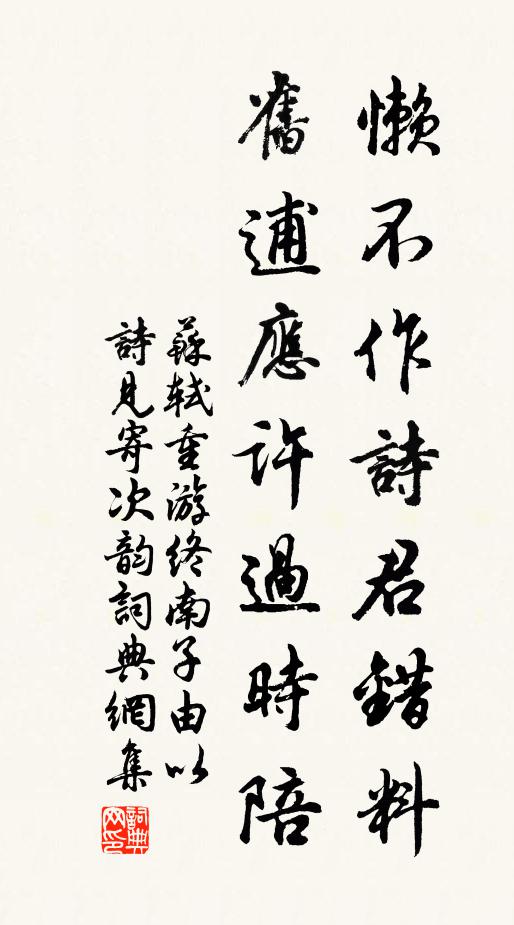 懶不作詩君錯料
舊逋應許過時陪
蘇軾重游終南子由以
詩見寄次韵詞典網集
詞典网印